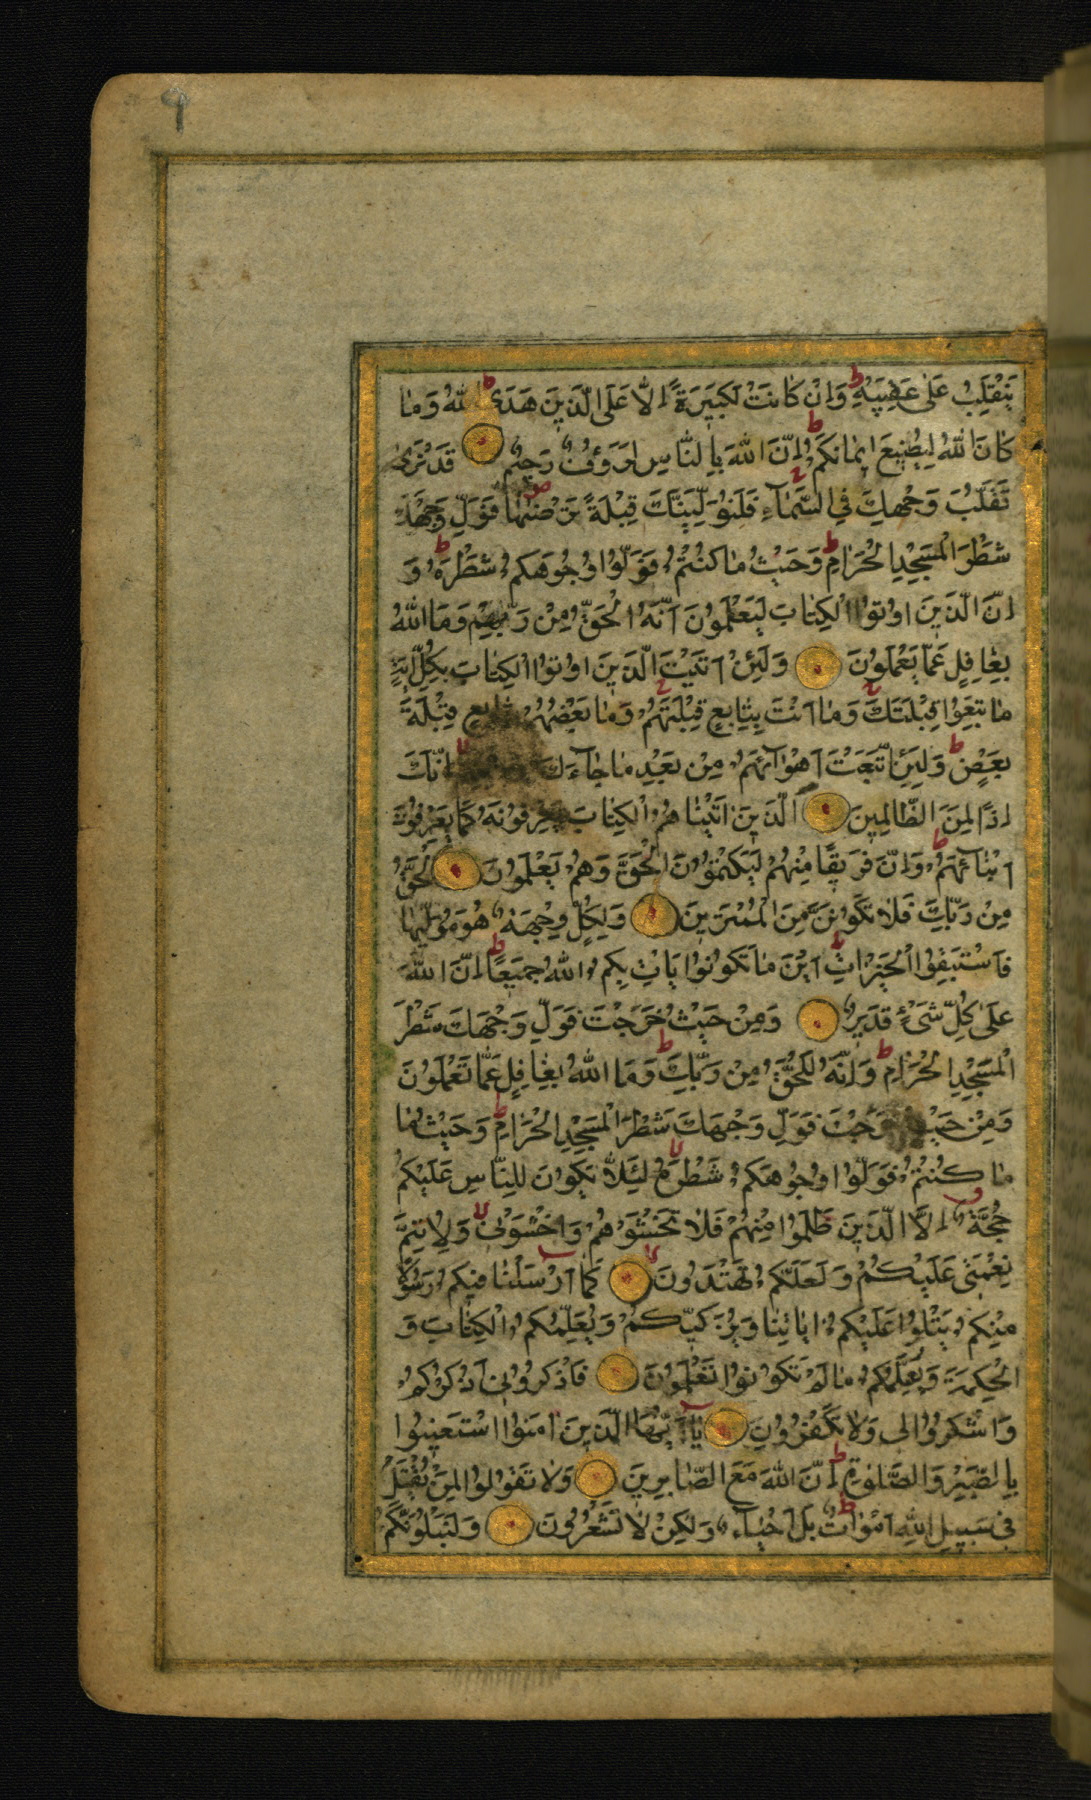 ٩
يَنْقَلِبُ عَلٰى عَقِبَيْهِ ط وَاِنْ كَانَتْ لَكَبِيرَةً اِلَّا عَلَى الَّذِينَ هَدَى اللّٰهُ ط وَمَا
كَانَ اللّٰهُ لِيُضِيعَ اِيمَانَكُمْ ط اِنَّ اللّٰهَ بِالنَّاسِ لَرَؤُفٌ رَحِيمٌ قَدْ نَرٰى
تَقَلُّبَ وَجْهِكَ فِي السَّمَاءِ ج فَلَنُوَلِّيَنَّكَ قِبْلَةً تَرْضٰيهَا ص فَوَلِّ وَجْهَكَ
شَطْرَ الْمَسْجِدِ الْحَرَامِ ط وَحَيْثُ مَا كُنْتُمْ فَوَلُّوا وُجُوهَكُمْ شَطْرَهُ ط وَ
اِنَّ الَّذِينَ اُوتُوا الْكِتَابَ لَيَعْلَمُونَ اَنَّهُ الْحَقُّ مِنْ رَبِّهِمْ وَمَا اللّٰهُ
بِغَافِلٍ عَمَّا يَعْمَلُونَ وَلَئِنْ اَتَيْتَ الَّذِينَ اُوتُوا الْكِتَابَ بِكُلِّ اٰيَةٍ
مَا تَبِعُوا قِبْلَتَكَ ج وَمَا اَنْتَ بِتَابِعٍ قِبْلَتَهُمْ ج وَمَا بَعْضُهُمْ بِتَابِعٍ قِبْلَةَ
بَعْضٍ ط وَلَئِنِ اتَّبَعْتَ اَهْوَاءَهُمْ مِنْ بَعْدِ مَا جَاءَكَ اِنَّكَ
اِذًا لَمِنَ الظَّالِمِينَ الَّذِينَ اٰتَيْنَاهُمُ الْكِتَابَ يَعْرِفُونَهُ كَمَا يَعْرِفُونَ
اَبْنَاءَهُمْ ط وَاِنَّ فَرِيقًا مِنْهُمْ لَيَكْتُمُونَ الْحَقَّ وَهُمْ يَعْلَمُونَ اَلْحَقُّ
مِنْ رَبِّكَ فَلَا تَكُونَنَّ مِنَ الْمُمْتَرِينَ وَلِكُلٍّ وِجْهَةٌ هُوَ مُوَلِّيهَا
فَاسْتَبِقُوا الْخَيْرَاتِ ط اَيْنَ مَا تَكُونُوا يَاْتِ بِكُمُ اللّٰهُ جَمِيعًا ط اِنَّ اللّٰهَ
عَلٰى كُلِّ شَىْءٍ قَدِيرٌ وَمِنْ حَيْثُ خَرَجْتَ فَوَلِّ وَجْهَكَ شَطْرَ
الْمَسْجِدِ الْحَرَامِ ط وَاِنَّهُ لَلْحَقُّ مِنْ رَبِّكَ ط وَمَا اللّٰهُ بِغَافِلٍ عَمَّا تَعْمَلُونَ
وَمِنْ حَيْثُ خَرَجْتَ فَوَلِّ وَجْهَكَ شَطْرَ الْمَسْجِدِ الْحَرَامِ ط وَحَيْثُ مَا
مَا كُنْتُمْ فَوَلُّوا وُجُوهَكُمْ شَطْرَهُ لا لِئَلَّا يَكُونَ لِلنَّاسِ عَلَيْكُمْ
حُجَّةٌ اِلَّا الَّذِينَ ظَلَمُوا مِنْهُمْ فَلَا تَخْشَوْهُمْ وَاخْشَوْنِى لا وَلِاُتِمَّ
نِعْمَتِى عَلَيْكُمْ وَلَعَلَّكُمْ تَهْتَدُونَ لا كَمَا اَرْسَلْنَا فِيكُمْ رَسُولًا
مِنْكُمْ يَتْلُوا عَلَيْكُمْ اٰيَاتِنَا وَيُزَكِّيكُمْ وَيُعَلِّمُكُمُ الْكِتَابَ وَ
الْحِكْمَةَ وَيُعَلِّمُكُمْ مَا لَمْ تَكُونُوا تَعْلَمُونَ فَاذْكُرُونِى اَذْكُرْكُمْ
وَاشْكُرُوا لِى وَلَا تَكْفُرُونِ يَا اَيُّهَا الَّذِينَ اٰمَنُوا اسْتَعِينُوا
بِالصَّبْرِ وَالصَّلٰوةِ ط اِنَّ اللّٰهَ مَعَ الصَّابِرِينَ وَلَا تَقُولُوا لِمَنْ يُقْتَلُ
فِى سَبِيلِ اللّٰهِ اَمْوَاتٌ ط بَلْ اَحْيَاءٌ وَلٰكِنْ لَا تَشْعُرُونَ وَلَنَبْلُوَنَّكُمْ